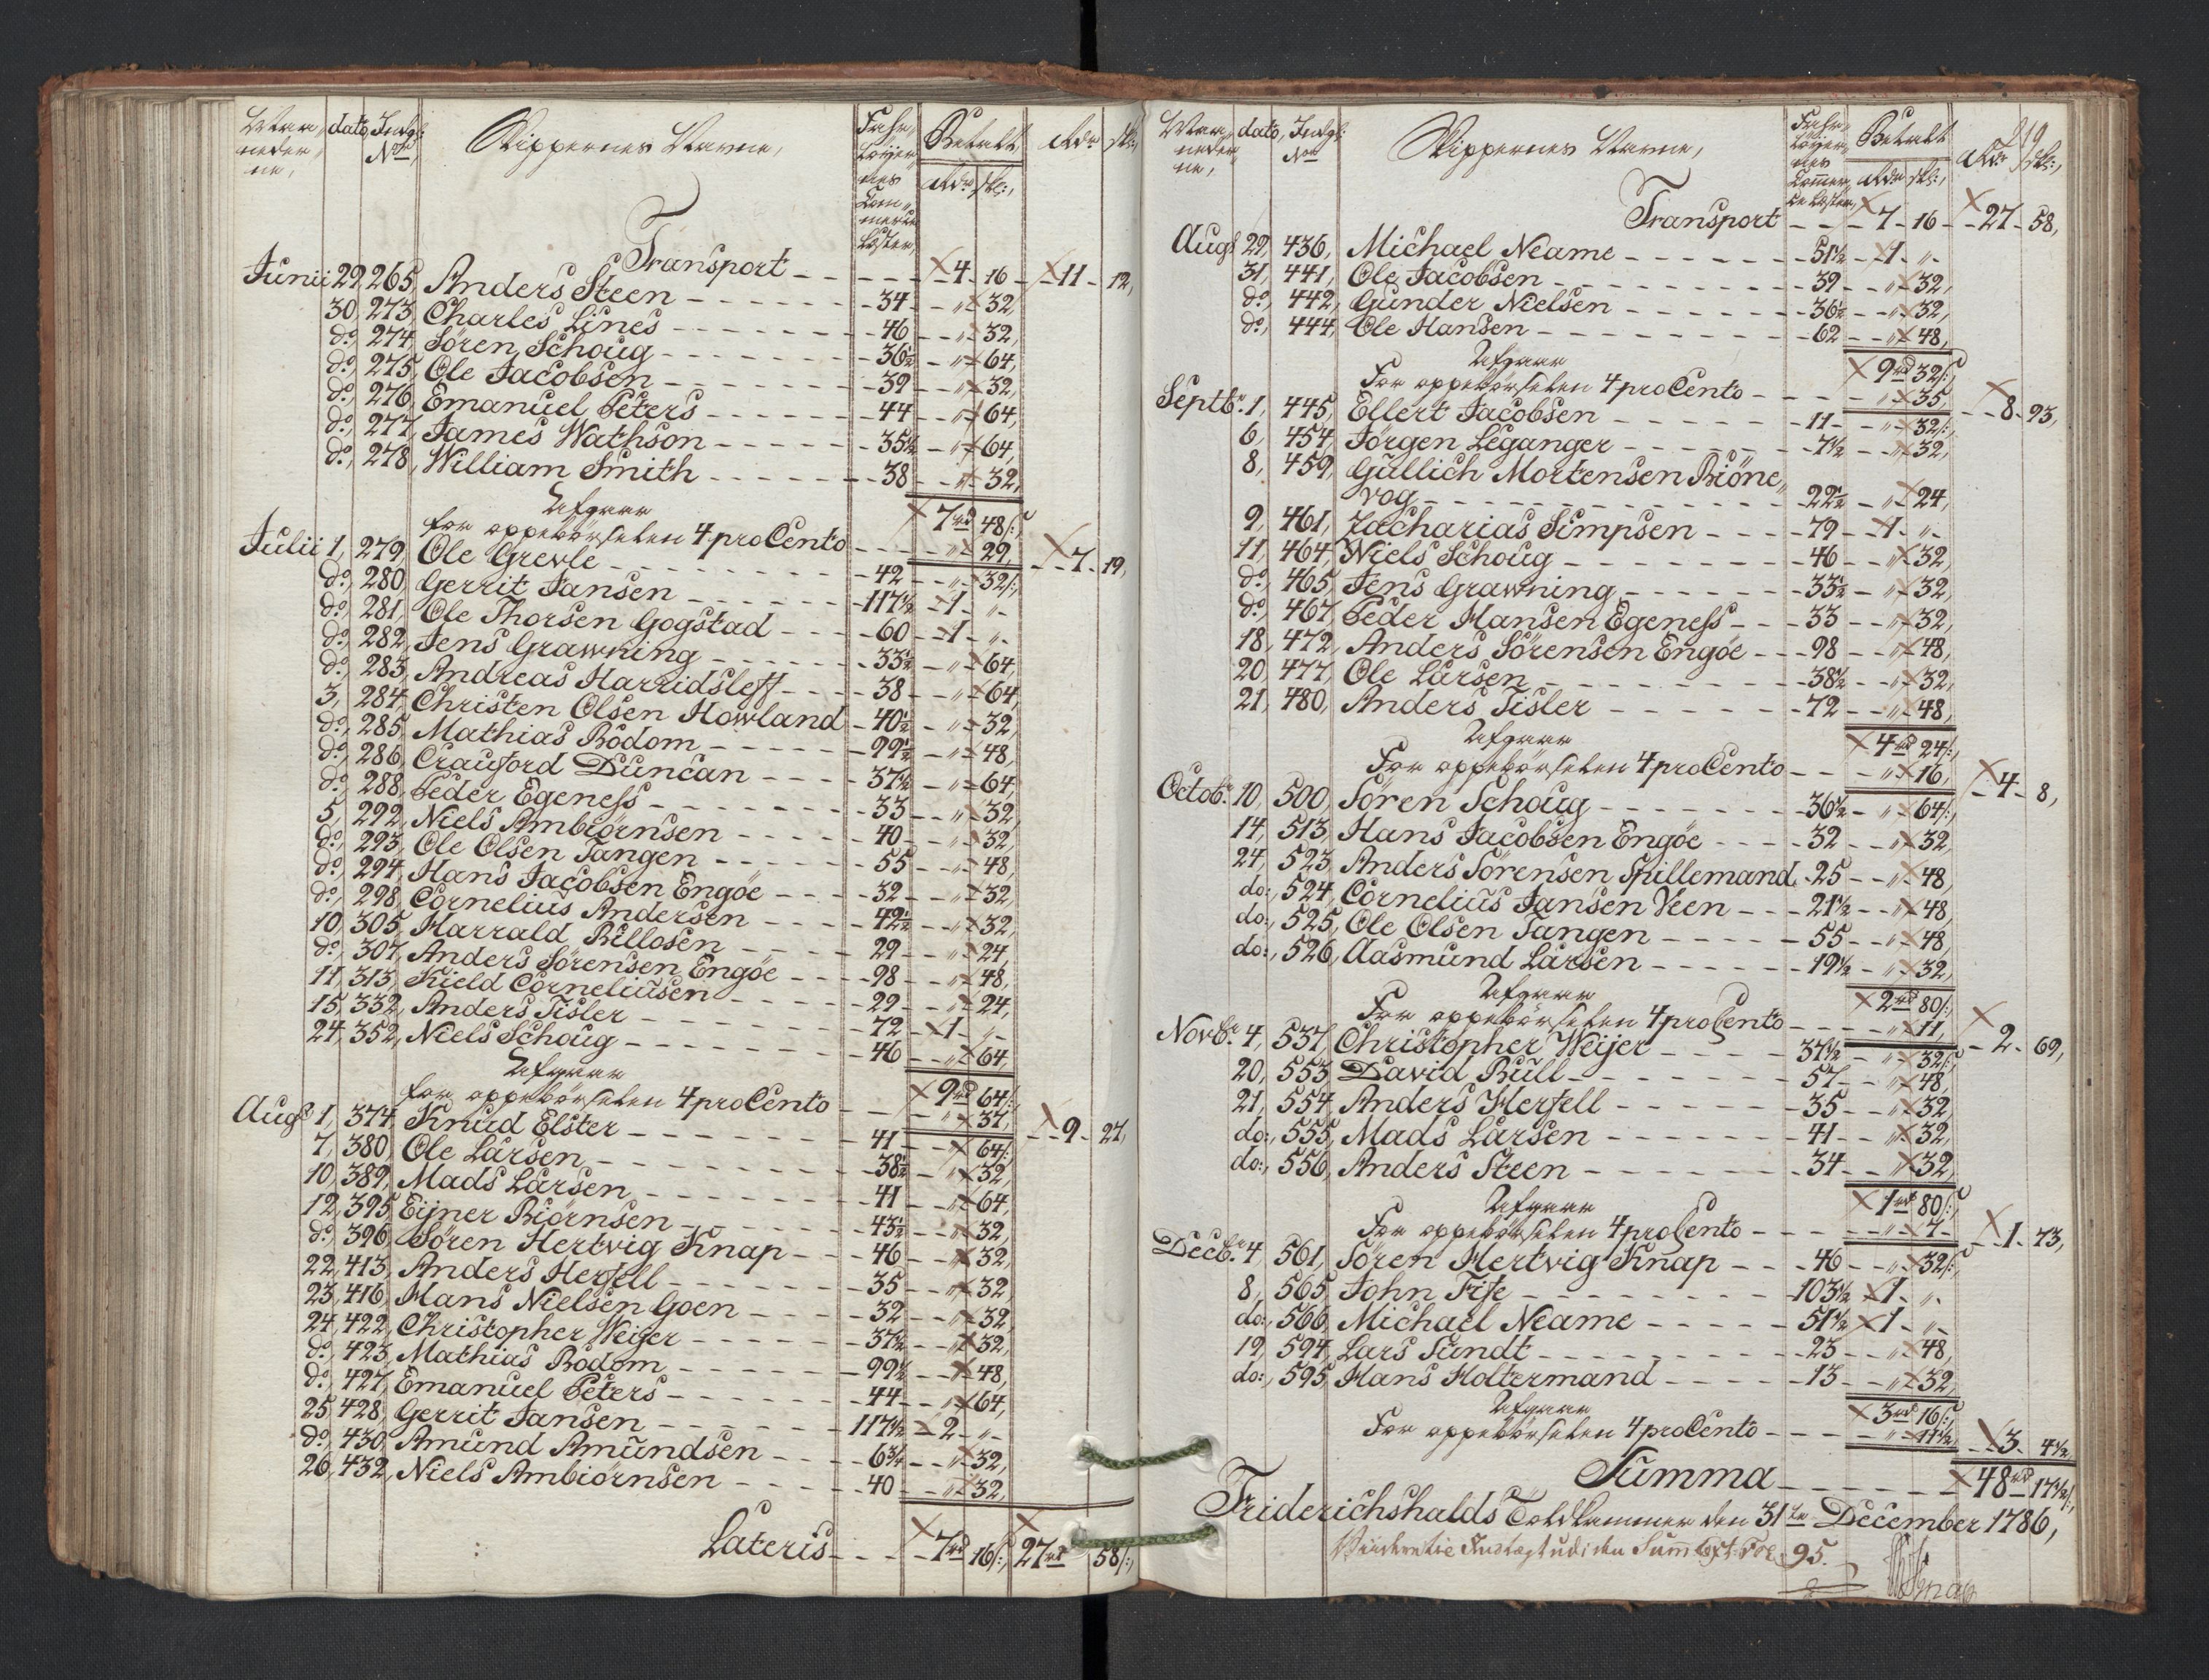 Maa- dato, Indgl: Skippernes Navne, Fahr- Betalt, Rdr skl:,
neder- No, tøyer-
ne, nes Rdr skl:,
Com-
merce
Læster,
Transport - - 4 - 16 - 11 - 12,
Junii 29, 265, Anders Steen - - 34 - - " - 32,
30, 273, Charles Lines - - 46 - - " - 32,
do, 274, Sören Schoug - - 36½ - " - 64,
do, 275, Ole Jacobsen - - 39 - - " - 32,
do, 276, Emanuel Peters - - 44 - - " - 64,
do, 277, James Wathson - - 35½ - " - 64,
do, 278, William Smith - - 38 - - " - 32,
7rd 48s:
Afgaar
for oppebörselen 4 pro Cento - - " - 29, - 7 - 19,
Julii 1, 279, Ole Grevle - - 42 - - " - 32s:,
do, 280, Gerrit Jansen - - 117½ - 1 - " -
do, 281, Ole Thorsen Gogstad - - 60 - - 1 - " -
do, 282, Jens Grawning - - 33½ - " - 64,
do, 283, Andreas Harridsleff - - 38 - - " - 64,
3, 284, Christen Olsen Howland - 40½ - " - 32,
do, 285, Mathias Bodom - - 99½ - " - 48,
do, 286, Crauford Duncan - - 37½ - " - 64,
do, 288, Peder Egeness - - 33 - - " - 32,
5, 292, Niels Ambiörnsen - - 40 - - " - 32,
do, 293, Ole Olsen Tangen - - 55 - - " - 48,
do, 294, Hans Jacobsen Engöe - - 32 - - " - 32,
do, 298, Cornelius Andersen - - 42½ - - " - 32,
10, 305, Harrald Billosen - - 29 - - " - 24,
do, 307, Anders Sörensen Engöe - - 98 - - " - 48,
11, 313, Kield Corneliusen - - 29 - - " - 24,
15, 332, Anders Tisler - - 72 - 1 - " -
24, 352, Niels Schoug - - 46 - - " - 64,
9rd 64s:
Afgaar
for oppebörselen 4 pro Cento - - " - 37, - 9 - 27,
Augs 1, 374, Knud Elster - - 41 - - 64s:
7, 380, Ole Larsen - - 38½ - " - 32,
10, 389, Mads Larsen - - 41 - - " - 64,
12, 395, Eijner Biörnsen - - 43½ - - " - 32,
do, 396, Sören Hertvig Knap - - 46 - - " - 32,
22, 413, Anders Herfell - - 35 - - " - 32,
23, 416, Hans Nielsen Goen - - 32 - - " - 32,
24, 422, Christopher Weijer - - 37½ - - " - 32,
do, 423, Mathias Bodom - - 99½ - - " - 48,
do, 427, Emanuel Peters - - 44 - - " - 64,
25, 428, Gerrit Jansen - - 117½ - 2 - " -
do, 430, Amund Amundsen - - 6¾ - - " - 32,
26, 432, Niels Ambiörnsen - - 40 - - " - 32,
Lateris - - 7rd 16s:, 27rd 58s:,
219
Maa- dato, Indgl: Skippernes Navne, Fahr- Betalt Rdr skl:,
neder- No tøyer-
ne, nes
Commer- Rdr skl:,
ce Læster,
Transport - - 7 - 16 - - 27 - 58,
Augs 29, 436, Michael Neame - - 51½ - 1 - " -
31, 441, Ole Jacobsen - - 39 - - " - 32,
do, 442, Gunder Nielsen - - 36½ - - " - 32,
do, 444, Ole Hansen - - 62 - - " - 48,
9rd 32s:
Afgaar
For oppebörselen 4 pro Cento - - " - 35, - - 8 - 93,
Septbr. 1, 445, Ellert Jacobsen - - 11 - - " - 32s:,
6, 454, Jörgen Leganger - - 7½ - - " - 32,
8, 459, Gullich Mortensen Biöne-
vog - - 22½ - " - 24,
9, 461, Zacharias Simpsen - - 79 - 1 - " -
11, 464, Niels Schoug - - 46 - - " - 32,
do, 465, Jens Grawning - - 33½ - " - 32,
do, 467, Peder Hansen Egeness - - 33 - - " - 32,
18, 472, Anders Sörensen Engöe - - 98 - - " - 48,
20, 477, Ole Larsen - - 38½ - - " - 32,
21, 480, Anders Tisler - - 72 - - " - 48,
4rd 24s:,
Afgaar
For oppebörselen 4 pro Cento - - " - 16, - 4 - 8,
Octobr. 10, 500, Sören Schoug - - 36½ - " - 64s:,
14, 513, Hans Jacobsen Engöe - - 32 - - " - 32,
24, 523, Anders Sörensen Spillemand - 25 - - " - 48,
do:, 524, Cornelius Jansen Veen - - 21½ - - " - 48,
do:, 525, Ole Olsen Tangen - - 55 - - " - 48,
do:, 526, Aasmund Larsen - - 19½ - " - 32,
2rd 80s:,
Afgaar
For oppebörselen 4 pro Cento - - " - 11, - 2 - 69,
Novbr. 4, 537, Christopher Weijer - - 37½ - " - 32s:,
20, 553, David Bull - - 57 - - " - 48,
21, 554, Anders Herfell - - 35 - - " - 32,
do:, 555, Mads Larsen - - 41 - - " - 32,
do:, 556, Anders Steen - - 34 - - " - 32,
1rd 80s:,
Afgaar
For oppebörselen 4 pro Cento - - " - 7 - - 1 - 73,
Decbr. 4, 561, Sören Hertvig Knap - - 46 - - " - 32s:,
8, 565, John Fife - - 103½ - 1 - " -
do:, 566, Michael Neame - - 51½ - 1 - " -
19, 594, Lars Sundt - - 23 - - " - 48,
do:, 595, Hans Holtermand - - 13 - - " - 32,
3rd 16s:,
Afgaar
For oppebörselen 4 pro Cento - - " - 11½, - 3 - 4½,
Summa - - 48rd 17½s:,
Friderichshalds Toldkammer den 31te December 1786,
Indtægt udi den Summ 95.